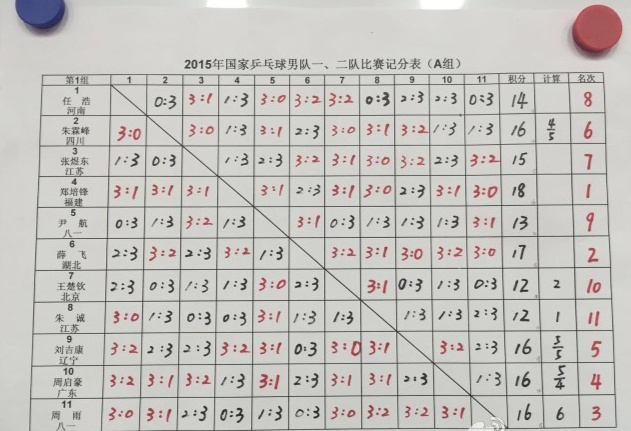 2015年国家乒乓球男队一、二队比赛记分表（A组）
第1组 1 2 3 4 5 6 7 8 9 10 11 积分 计算 名次
1 任浩 河南 0:3 3:1 1:3 3:0 3:2 3:2 0:3 2:3 2:3 0:3 14 8
2 朱霖峰 四川 3:0 3:0 1:3 3:1 2:3 3:0 3:1 3:2 1:3 1:3 16 4/5 6
3 张煜东 江苏 1:3 0:3 1:3 2:3 3:2 3:1 3:0 3:2 2:3 3:2 15 7
4 郑培锋 福建 3:1 3:1 3:1 3:1 2:3 3:1 3:0 2:3 3:1 3:0 18 1
5 尹航 八一 0:3 1:3 3:2 1:3 3:1 0:3 1:3 1:3 1:3 3:1 13 9
6 薛飞 湖北 2:3 3:2 2:3 3:2 1:3 3:2 3:1 3:0 3:2 3:0 17 2
7 王楚钦 北京 2:3 0:3 1:3 1:3 3:0 2:3 3:1 0:3 1:3 0:3 12 2 10
8 朱诚 江苏 3:0 1:3 0:3 0:3 3:1 1:3 1:3 1:3 1:3 2:3 12 1 11
9 刘吉康 辽宁 3:2 2:3 2:3 3:2 3:1 0:3 3:0 3:1 3:2 2:3 16 5/5 5
10 周启豪 广东 3:2 3:1 3:2 1:3 3:1 2:3 3:1 3:1 2:3 1:3 16 5/4 4
11 周雨 八一 3:0 3:1 2:3 0:3 1:3 0:3 3:0 3:2 3:2 3:1 16 6 3